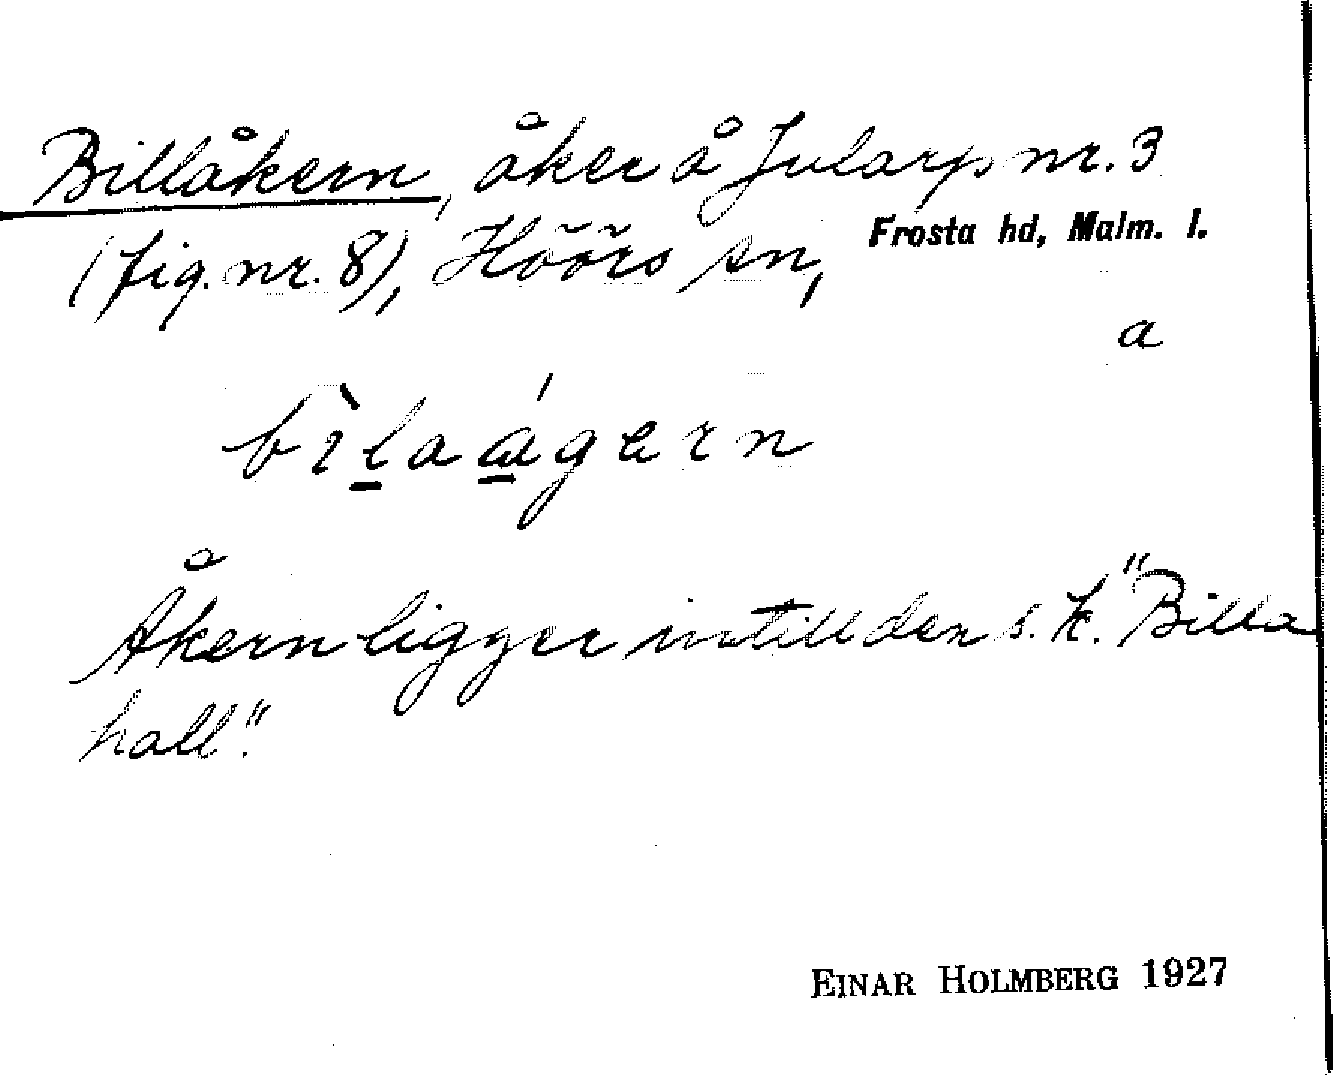 Billåkern, åker å Jularp nr. 3
(fig. nr. 8), Höörs sn, Frosta hd, Malm. l.
a
bìlaágern
Åkern ligger intill den s. k. "Billa
hall".
EINAR HOLMBERG 1927